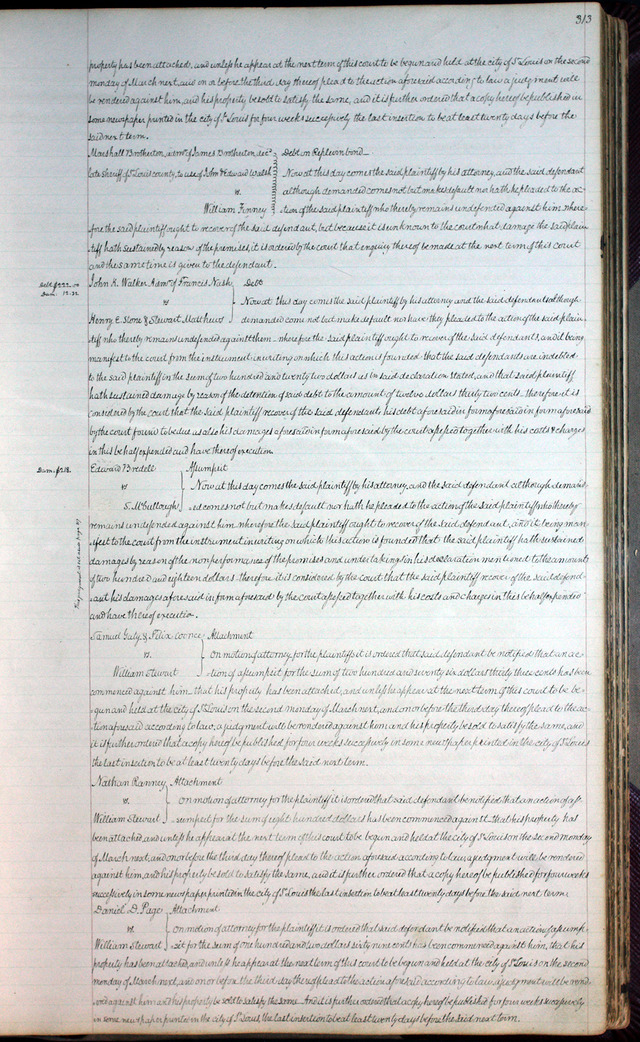 313
property has been attached, and unless he appear at the next term of this court to be begun and held at the city of St Louis on the second
monday of March next, and on or before the third day thereof plead to the action aforesaid according to law a judgment will
be rendered against him, and his property be sold to satisfy the same, and it is further ordered that a copy hereof be published in
some newspaper printed in the city of St Louis for four weeks successively the last insertion to be at least twenty days before the
said next term.
Marshall Brotherton, admr of James Brotherton, decd Debt on Replevin bond
late sheriff of St Louis county, to use of John & Edward Walsh Now at this day comes the said plaintiff by his attorney, and the said defendant
vs. although demanded comes not but makes default nor hath he pleaded to the ac-
William Finney tion of the said plaintiff who thereby remains undefended against him. where
fore the said plaintiff ought to recover of the said defendant, but because it is unknown to the court what damage the said plain-
tiff hath sustained by reason of the premises, it is ordered by the court that enquiry thereof be made at the next term of this court
and the same time is given to the defendant.
Debt $222.00
Dam: 12.32
John K. Walker Admr of Francis Nash Debt
vs Now at this day comes the said plaintiff by his attorney and the said defendants although
Henry E. Stone & Stewart Matthews demanded come not but make default nor have they pleaded to the action of the said plain-
tiff who thereby remains undefended against them. wherefore the said plaintiff ought to recover of the said defendants, and it being
manifest to the court from the instrument in writing on which this action is founded that the said defendants are indebted
to the said plaintiff in the sum of two hundred and twenty two dollars as in said declaration stated, and that said plaintiff
hath sustained damage by reason of the detention of said debt to the amount of twelve dollars thirty two cents. therefore it is
considered by the court that the said plaintiff recover of the said defendants his debt aforesaid in form aforesaid in form aforesaid
by the court found to be due as also his damages aforesaid in form aforesaid by the court assessed together with his costs & charges
in this behalf expended and have thereof execution.
Dam: $218.
Edward Bredell Assumpsit
vs Now at this day comes the said plaintiff by his attorney, and the said defendant although demand-
S. McCullough ed comes not but makes default nor hath he pleaded to the action of the said plaintiff who thereby
remains undefended against him wherefore the said plaintiff ought to recover of the said defendant, and it being man-
ifest to the court from the instrument in writing on which this action is founded that the said plaintiff hath sustained
damages by reason of the nonperformance of the promises and undertakings in his declaration mentioned to the amount
of two hundred and eighteen dollars. therefore it is considered by the Court that the said plaintiff recover of the said defend-
ant his damages aforesaid in form aforesaid by the court assessed together with his costs and charges in this behalf expended
and have thereof execution.
judgment set aside page
Samuel Gaty & Felix Coonce Attachment
vs. On motion of attorney for the plaintiffs it is ordered that said defendant be notified that an ac-
William Stewart tion of assumpsit for the sum of two hundred and seventy six dollars thirty three cents has been
commenced against him that his property has been attached, and unless he appear at the next term of this court to be be-
gun and held at the city of St Louis on the second monday of March next, and on or before the third day thereof plead to the ac-
tion aforesaid according to law, a judgment will be rendered against him and his property be sold to satisfy the same, and
it is further ordered that a copy hereof be published for four weeks successively in some newspaper printed in the city of St Louis
the last insertion to be at least twenty days before the said next term.
Nathan Ranney Attachment
vs. On motion of attorney for the plaintiff it is ordered that said defendant be notified that an action of as-
William Stewart sumpsit for the sum of eight hundred dollars has been commenced against that his property has
been attached, and unless he appear at the next term of this court to be begun and held at the city of St Louis on the second monday
of March next, and on or before the third day thereof plead to the action aforesaid according to law, a judgment will be rendered
against him, and his property be sold to satisfy the same, and it is further ordered that a copy hereof be published for four weeks
successively in some newspaper printed in the city of St Louis the last insertion to be at least twenty days before the said next term.
Daniel D. Page Attachment
vs. On motion of attorney for the plaintiff it is ordered that said defendant be notified that an action of assump-
William Stewart sit for the sum of one hundred and two dollars sixty nine cents has been commenced against him, that his
property has been attached, and unless he appear at the next term of this court to be begun and held at the city of St Louis on the second
monday of March next, and on or before the third day thereof plead to the action aforesaid according to law, a judgment will be rend-
ered against him and his property be sold to satisfy the same. And it is further ordered that a copy hereof be published for four weeks successively
in some newspaper printed in the city of St Louis, the last insertion to be at least twenty days before the said next term.